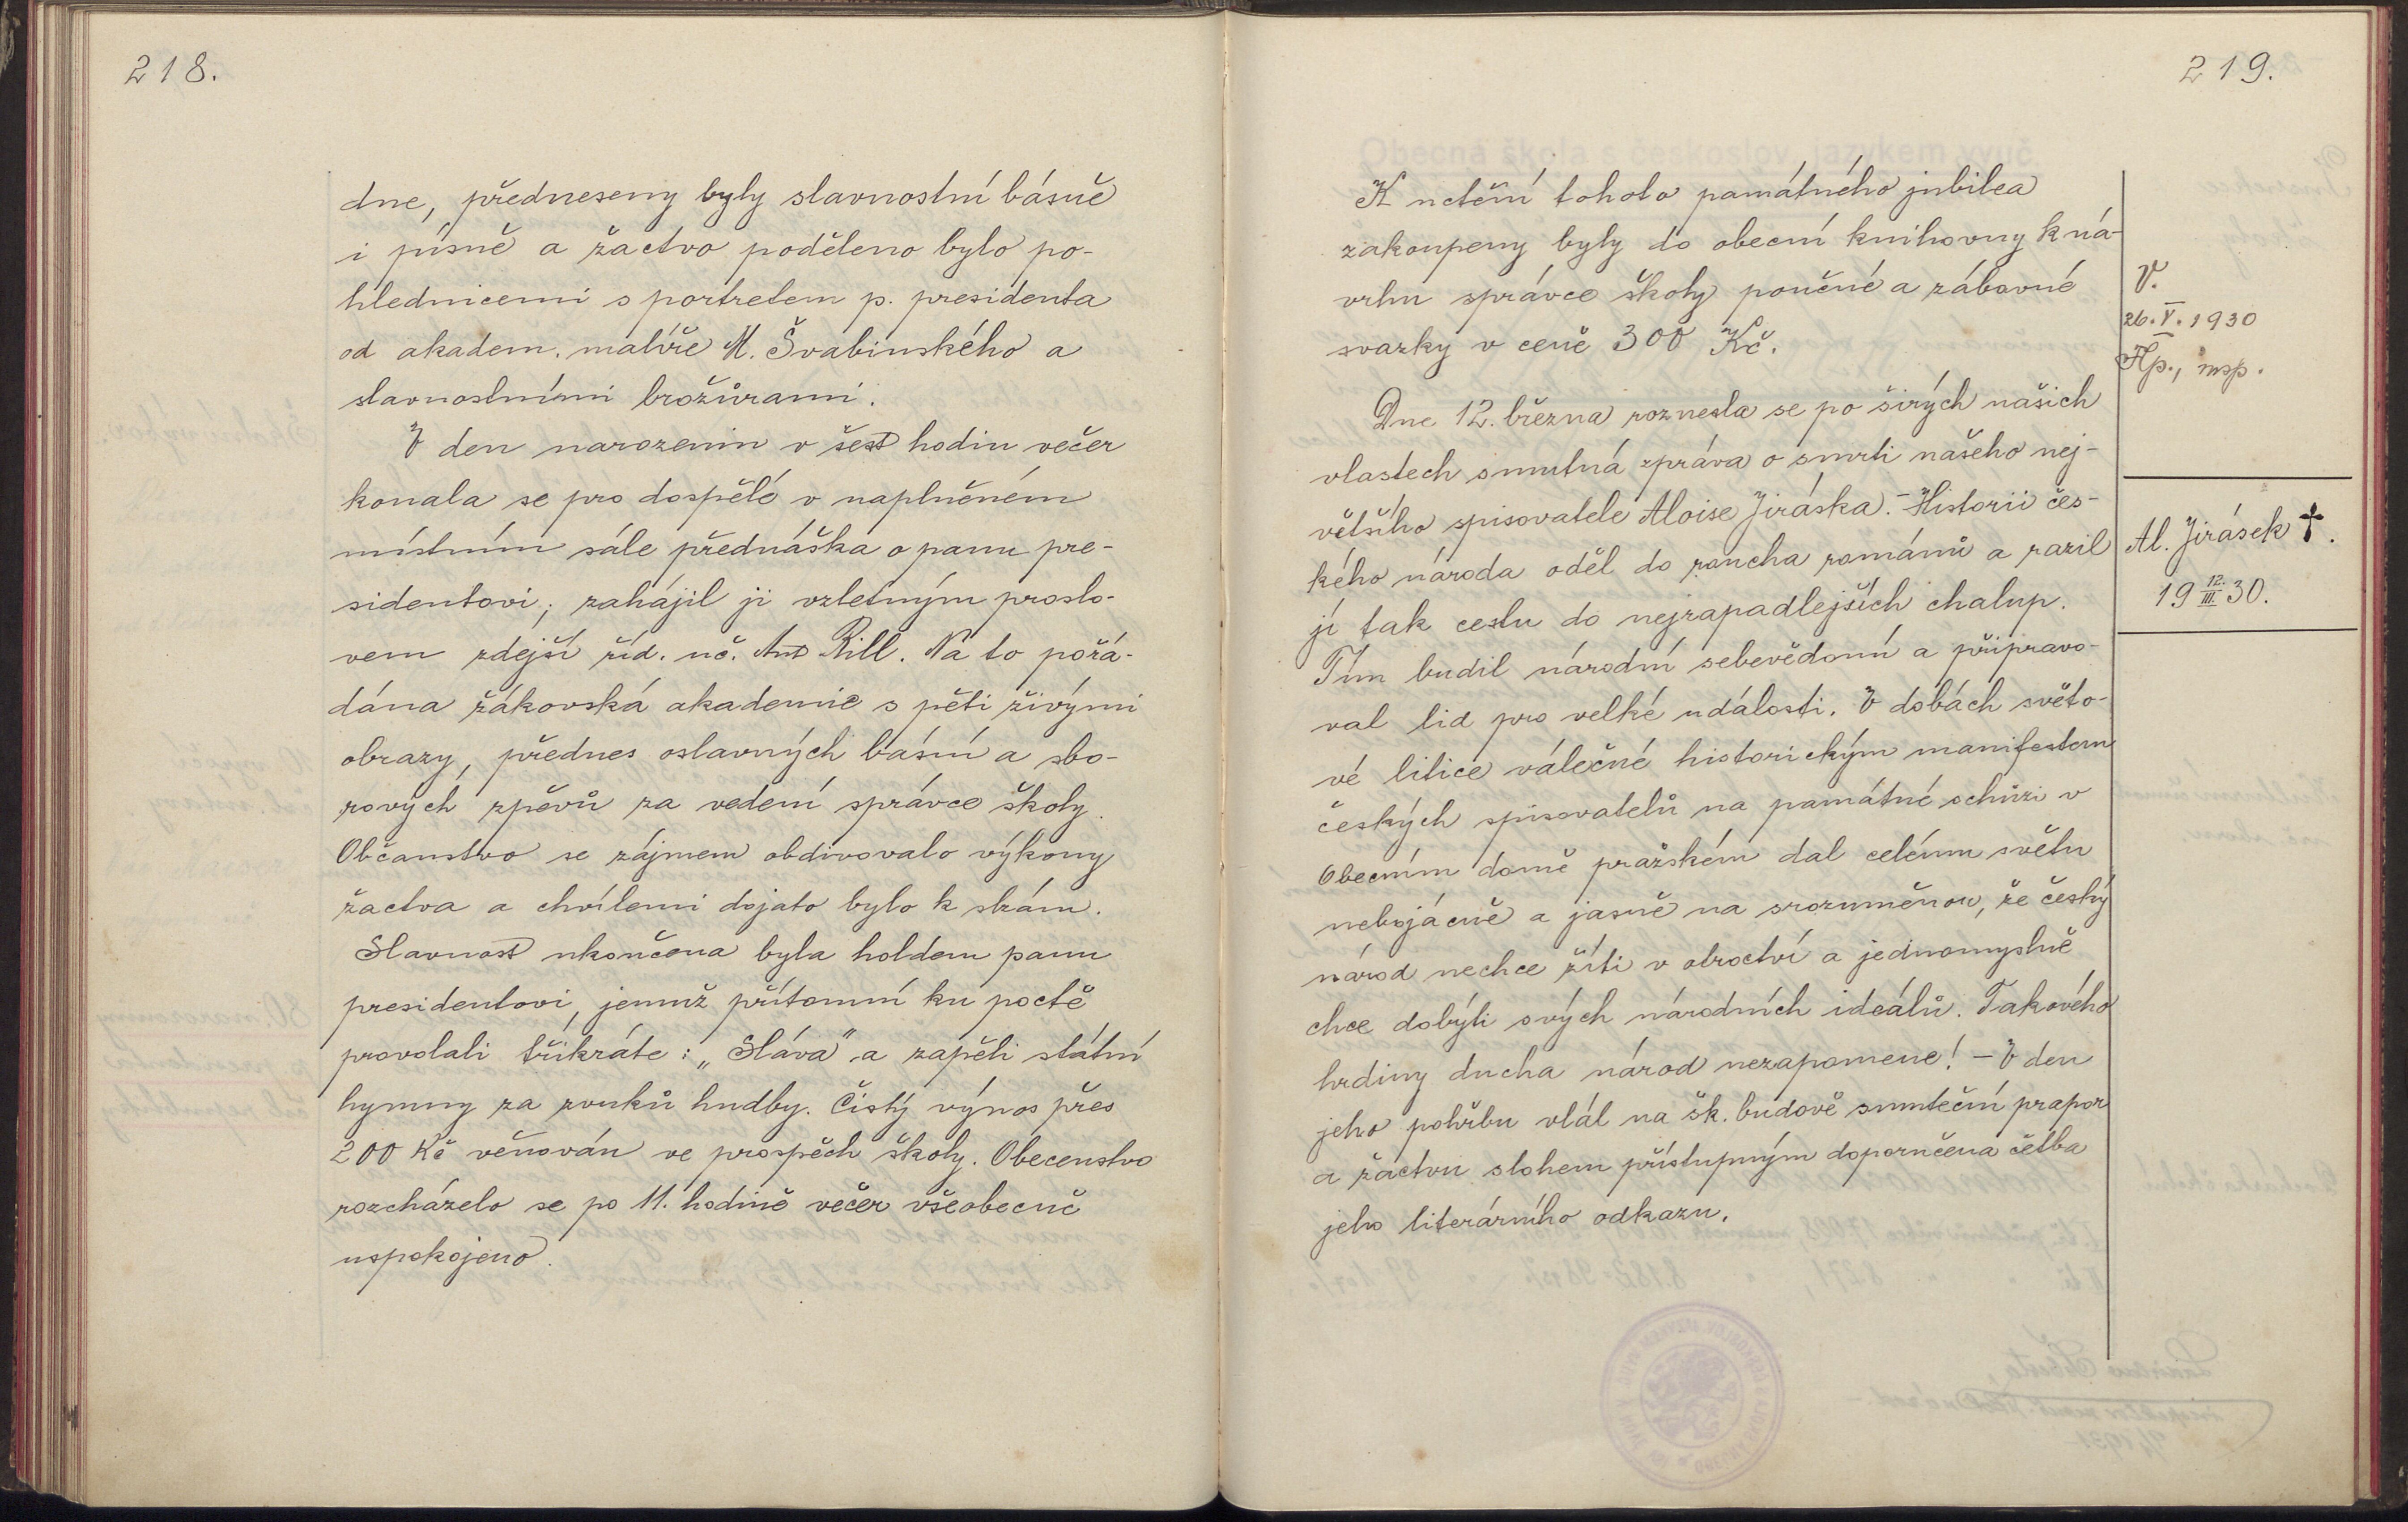 218.
dne, předneseny byly slavnostní básně
i písně a žactvo poděleno bylo po-
hlednicemi s portretem p. presidenta
od akadem. malíře M. Švabinského a
slavnostními brožůrami.
V den narozenin v šest hodin večer
konala se pro dospělé v naplněném
místním sále přednáška o panu pre-
sidentovi; zahájil ji vzletným proslo-
vem zdejší říd. uč. Ant Rill. Na to pořá-
dána žákovská akademie s pěti živými
obrazy, přednes oslavných básní a sbo-
rových zpěvů za vedení správce školy.
Občanstvo se zájmem obdivovalo výkony
žactva a chvílemi dojato bylo k slzám.
Slavnost ukončena byla holdem panu
presidentovi, jemuž přítomní ku poctě
provolali třikráte: „Sláva" a zapěli státní
hymny za zvuků hudby. Čistý výnos přes
200 Kč věnován ve prospěch školy. Obecenstvo
rozcházelo se po 11. hodině večer všeobecně
uspokojeno.
219.
K uctění tohoto památného jubilea
zakoupeny byly do obecní knihovny k ná-
vrhu správce školy poučné a zábavné
svazky v ceně 300 Kč.
V.
26. V. 1930
insp.
Dne 12. března roznesla se po širých našich
vlastech smutná zpráva o smrti našeho nej-
většího spisovatele Aloise Jiráska. - Historii čes-
kého národa oděl do roucha románů a razil
jí tak cestu do nejzapadlejších chalup.
Tím budil národní sebevědomí a připravo-
val lid pro velké události. V dobách světo-
vé litice válečné historickým manifestem
českých spisovatelů na památné schůzi v
Obecním domě pražském dal celému světu
nebojácně a jasně na srozuměnou, že český
národ nechce žíti v otroctví a jednomyslně
chce dobýti svých národních ideálů. Takového
hrdiny ducha národ nezapomene! - V den
jeho pohřbu vlál na šk. budově smuteční prapor
a žactvu slohem přístupným doporučena četba
jeho literárního odkazu.
Al. Jirásek †.
19 12./III. 30.